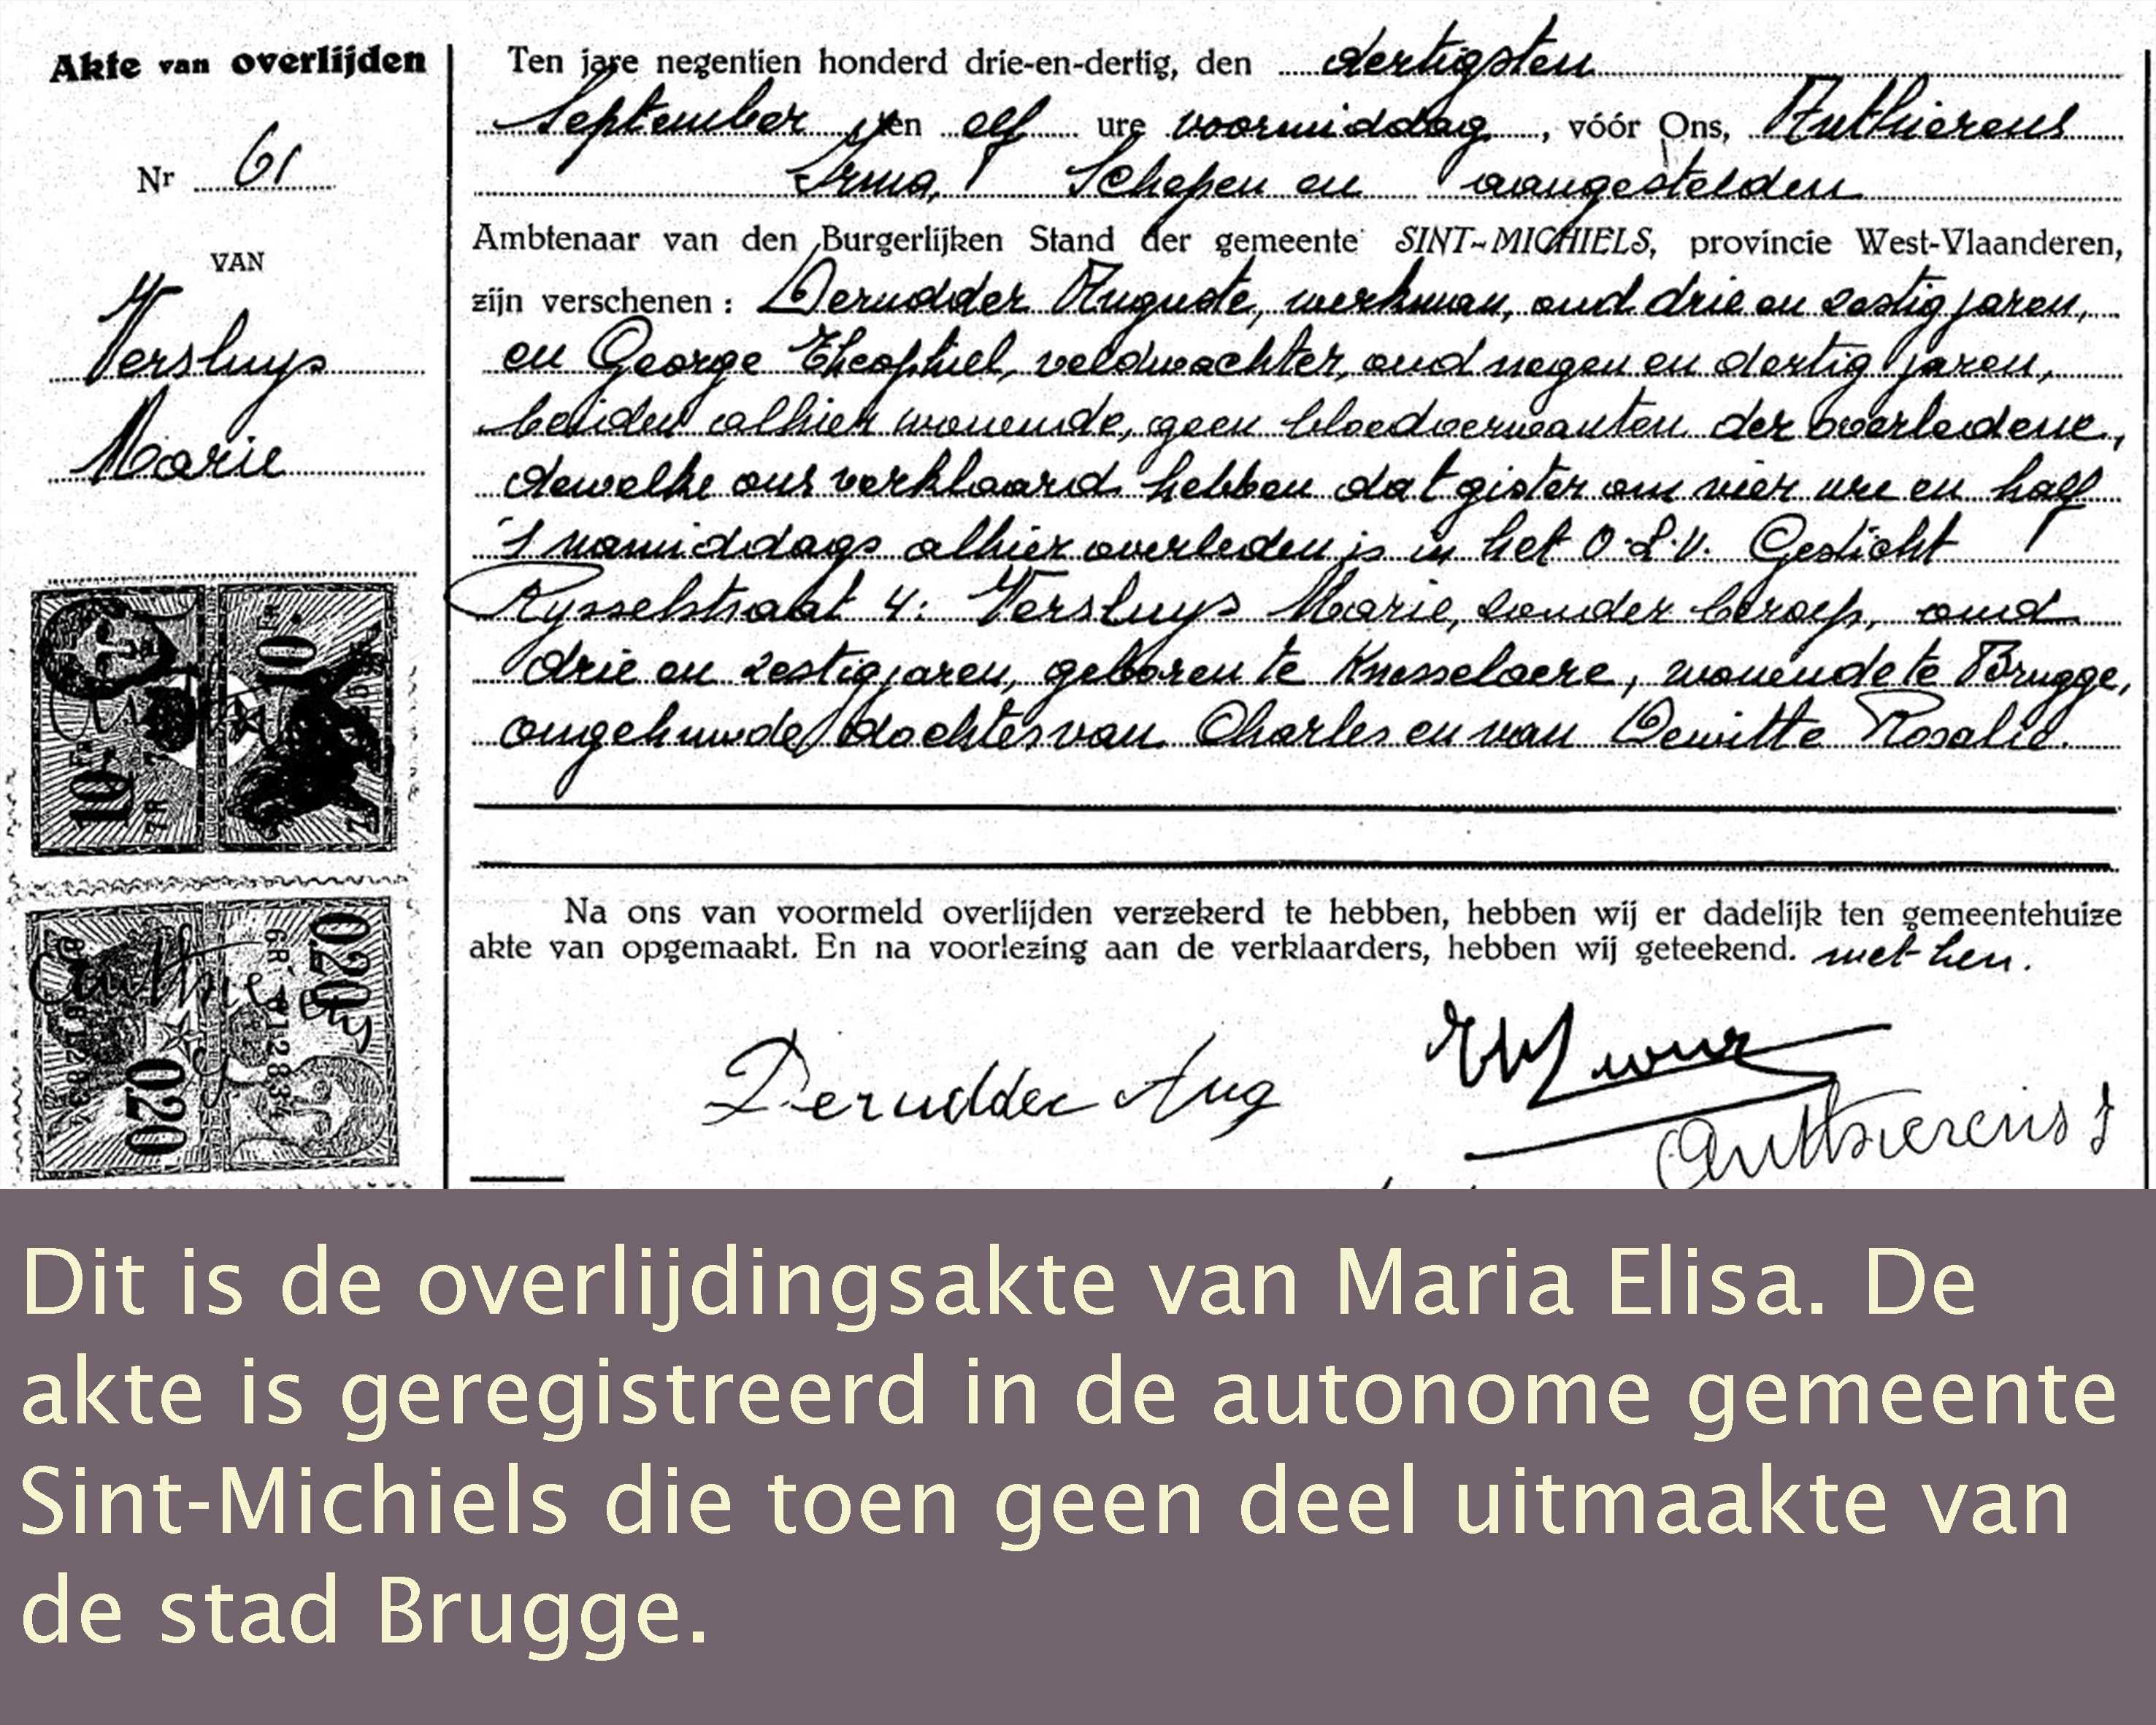 Akte van overlijden
Nr 61
VAN
Versluys
Marie
Ten jare negentien honderd drie-en-dertig, den dertigsten
September ten elf ure voormiddag, vóór Ons, Anthierens
Irma, Schepen en aangestelden
Ambtenaar van den Burgerlijken Stand der gemeente SINT-MICHIELS, provincie West-Vlaanderen,
zijn verschenen : Derudder Auguste, werkman, oud drie en zestig jaren,
en George Theophiel, veldwachter, oud negen en dertig jaren,
beiden alhier wonende, geen bloedverwanten der overledene,
dewelke ons verklaard hebben dat gister om vier ure en half
's namiddags alhier overleden is in het O.L.V. Gesticht
Rysselstraat 4: Versluys Marie, zonder beroep, oud
drie en zestig jaren, geboren te Knesselaere, wonende te Brugge,
ongehuwde dochter van Charles en van Dewitte Rosalie.
Na ons van voormeld overlijden verzekerd te hebben, hebben wij er dadelijk ten gemeentehuize
akte van opgemaakt. En na voorlezing aan de verklaarders, hebben wij geteekend. met hen.
Derudder Aug
Anthierens I
10
10
020
020
Dit is de overlijdingsakte van Maria Elisa. De
akte is geregistreerd in de autonome gemeente
Sint-Michiels die toen geen deel uitmaakte van
de stad Brugge.